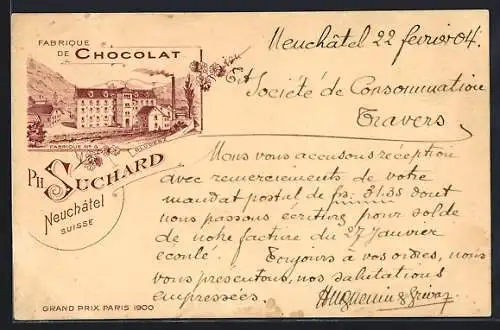 FABRIQUE
DE CHOCOLAT
FABRIQUE No 6
BLUDENZ
PH. SUCHARD
Neuchâtel
SUISSE
GRAND PRIX PARIS 1900
Neuchâtel 22 février 04.
Société de Consommation
Travers
Nous vous accusons réception
avec remerciements de votre
mandat postal de frs. 31.35 dont
nous passons écriture pour solde
de notre facture du 27 Janvier
écoulé. Toujours à vos ordres, nous
vous présentons, nos salutations
empressées.